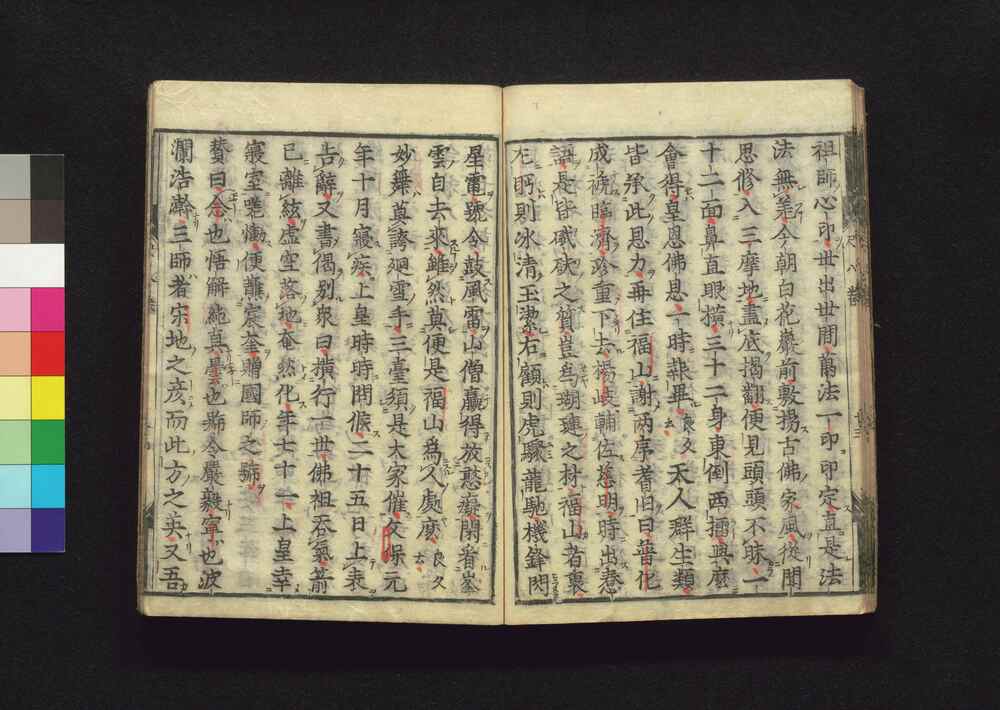 祖師心印世出世間萬法一印印定直是法
法無差今朝白花巖前敷揚古佛家風從聞
思修入三摩地盡底揭翻便見頭頭不昧一
十二面鼻直眼橫三十二身東倒西擂與麼
會得皇恩佛恩一時報畢良久云天人群生類
皆承此恩力再住福山謝兩序耆旧曰普化
成禠臨濟珍重下去楊岐輔佐慈明時出卷
語是皆砥砆之質豈為瑚璉之材福山者裏
左眄則氷清玉潔右顧則虎驟龍馳機鋒閃
星電號令鼓風雷山僧贏得放憨癡閑看峯
雲自去來雖然莫便是福山為人處麼良久云
妙舞莫誇廻雪手三臺須是大家催文保元
年十月寢疾上皇時時問候二十五日上表
告辭又書偈別衆曰橫行一世佛祖吞氣箭
已離絃虛空落地奄然化年七十一上皇幸
寢室嗟慟便蘸宸奎贈國師之號
贊曰念也悟解純真曇也號令嚴毅寧也波
瀾浩瀚三師者宋地之彥而此方之英又吾